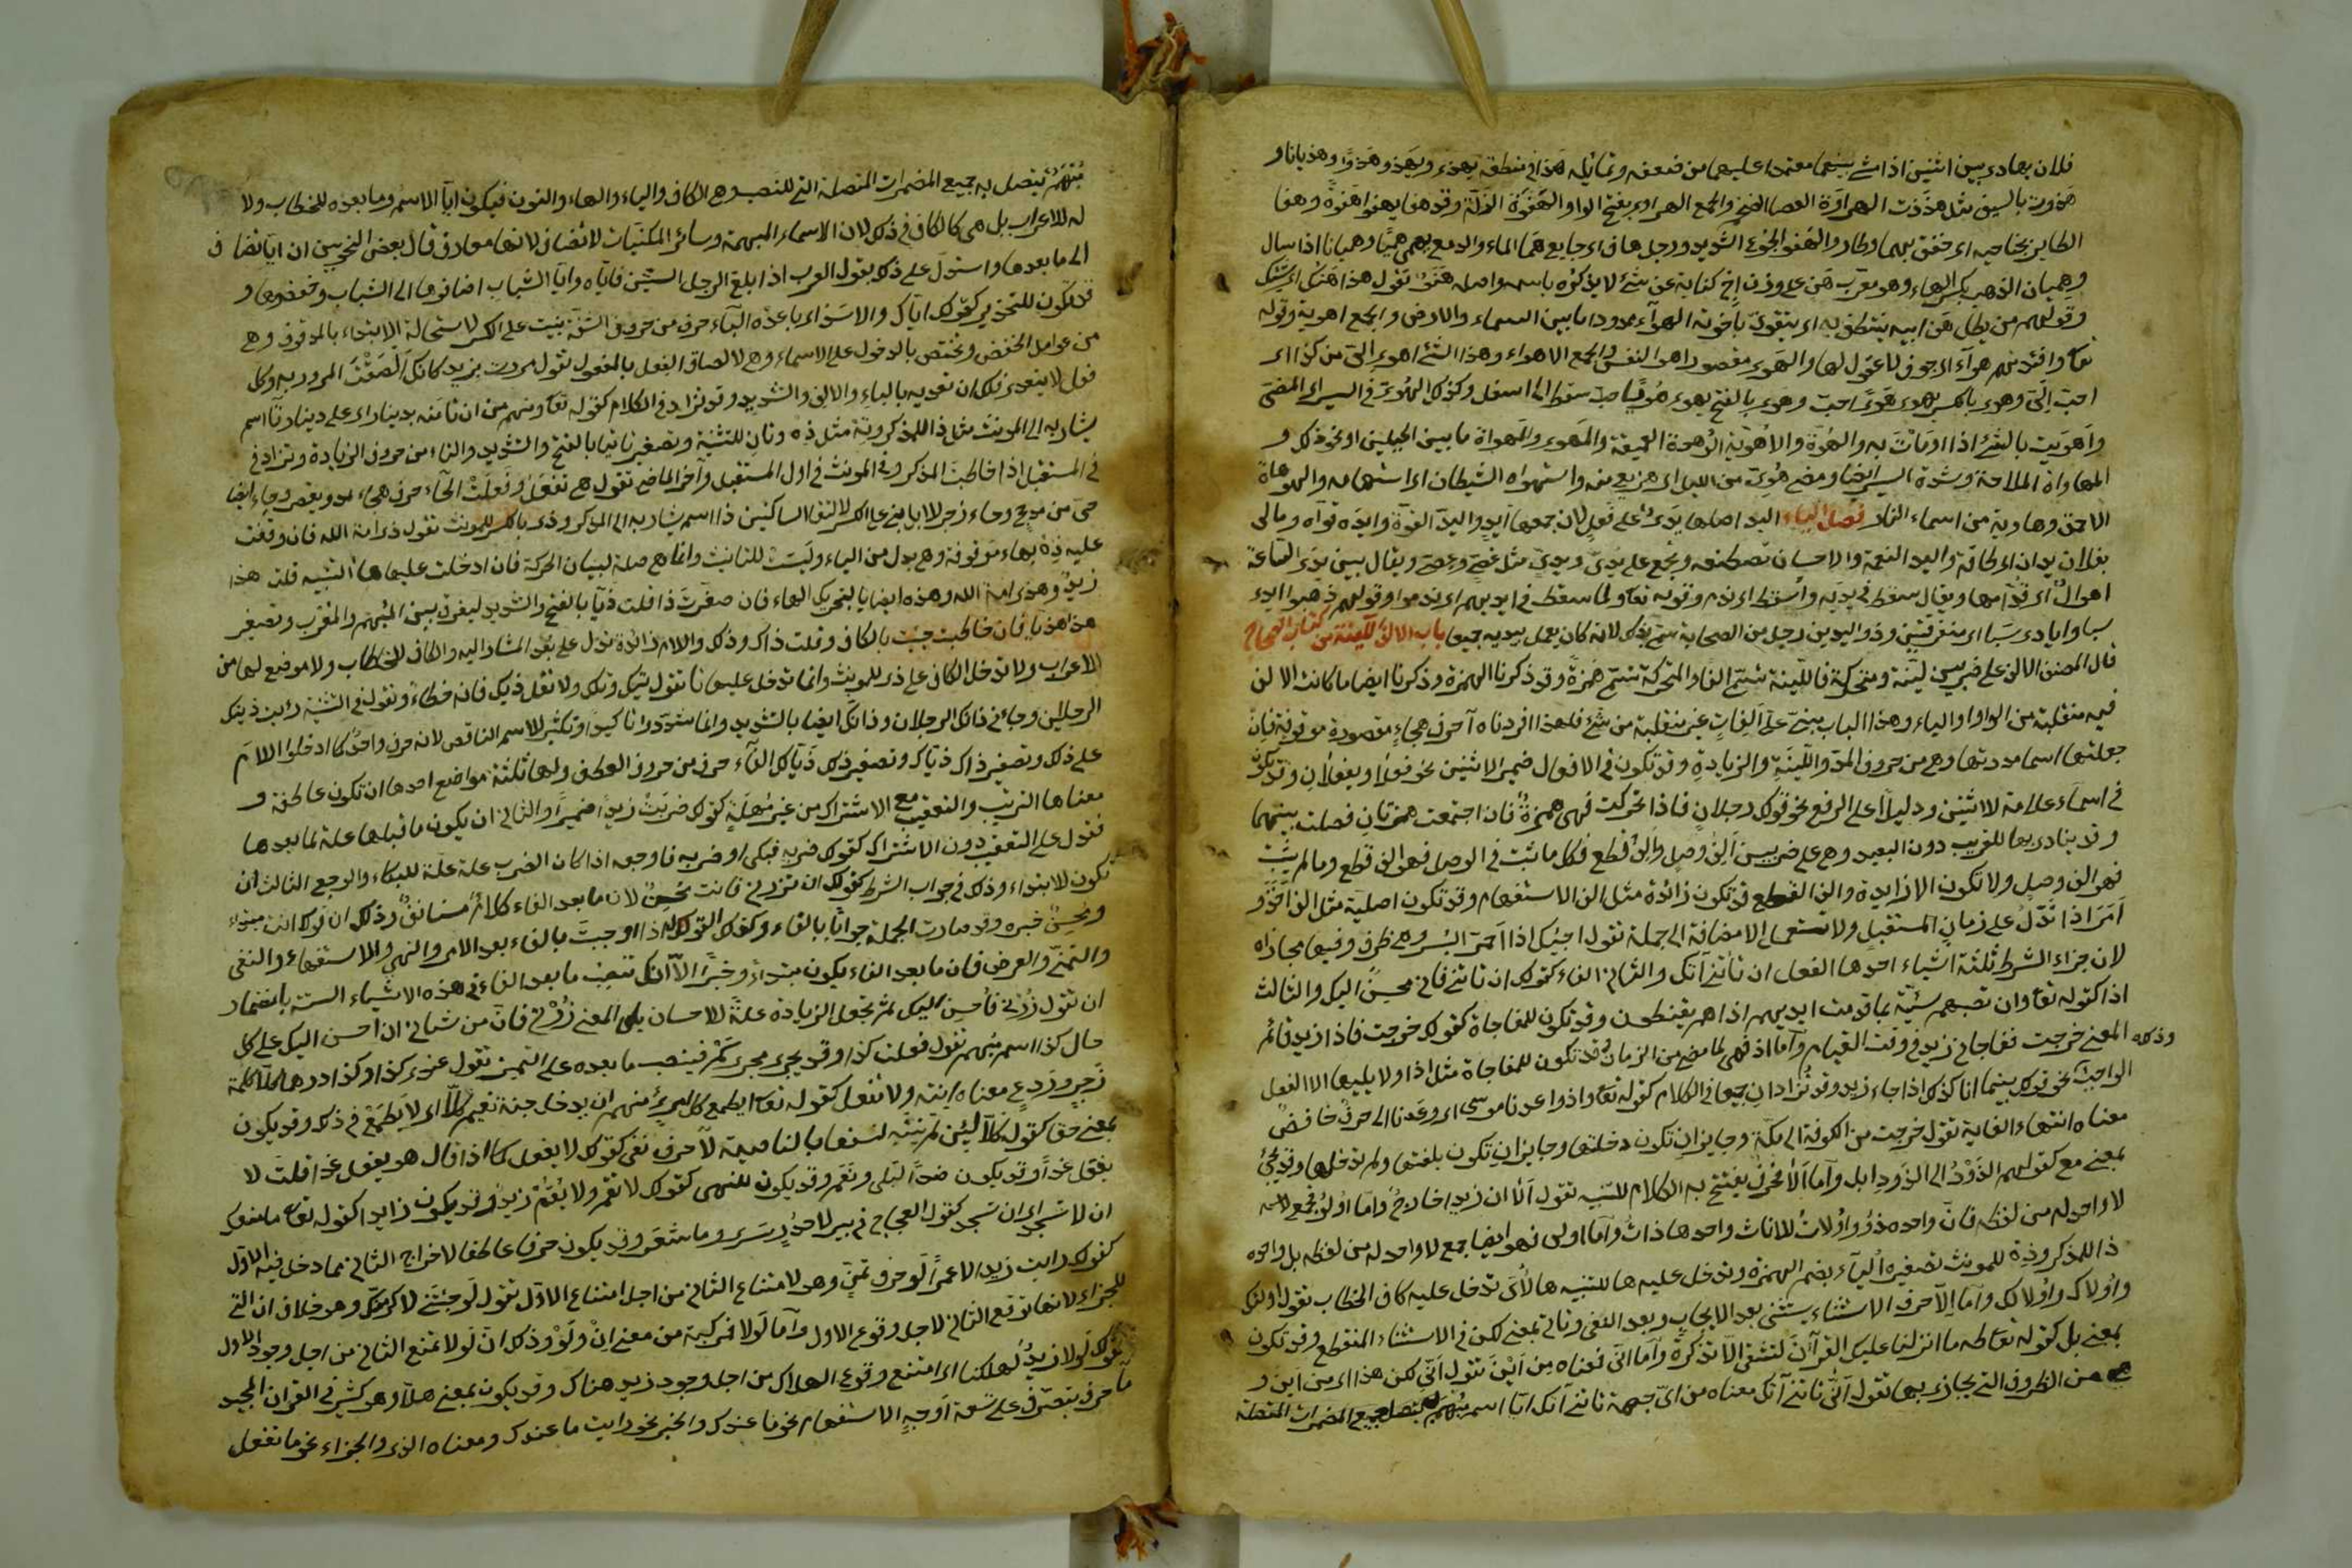 فلان يهادى بين اثنين اذا مشى بينهما معتمدا عليهما من ضعفه وتمايله هذا في منطقه يهذى ويهذو هذوا وهذيانا و
هذوت بالسيف مثل هذذت الهراوة العصا الضخم والجمع الهراوى بفتح الواو الهفوة الزلة وقد هفا يهفوا هفوة وهفا
الطاير بجناحيه اى خفق بهما وطار والهفو الجوع الشديد ورجل هاف اى جايع همى الماء والدمع يهمى هميا وهميانا اذا سال
وهميان الدهم بكسر الهاء وهو معرب هن على وزن اخ كناية عن شئ لا يذكره باسمه واصله هنو تقول هذا هنك اى شئك
وقولهم من يطل هن ابيه ينتطق به اى يتقوى باخوته الهوآء ممدود ما بين السماء والارض والجمع اهوية وقوله
تعا وافئدتهم هوآء اى جوف لا عقول لها والهوى مقصور اهوا النفس والجمع الاهواء وهذا الشئ اهوى الى من كذا اى
احب الى وهوى بالكسر يهوى هوى احب وهوى بالفتح يهوى هويا صب سقط الى اسفل وكذلك الهوى في السير اى المضى
واهويت بالشئ اذا اومأت به والهوة والاهوية الوهدة العميقة والمهوى والمهواة ما بين الجبلين او نحو ذلك و
المهاواة الملاحة وشدة السير ايضا ومضى هوى من الليل اى هزيع منه واستهواه الشيطان اى استهامه والهوهاة
الاحمق وهاوية من اسماء النار فصل الياء اليد اصلها يدى على فعل لان جمعها ايد واليد القوة وايده قواه ومالى
بفلان يدان اى طاقة واليد النعمة والاحسان تصطنعه ويجمع على يدى ويدى مثل عصى وعصى ويقال بين يدى الساعة
اهوال اى قدامها ويقال سقط في يديه واسقط اى ندم وقوله تعا ولما سقط في ايديهم اى ندموا وقولهم ذهبوا ايدى
سبا وايادى سبا اى متفرقين وذو اليدين رجل من الصحابة سمى بذلك لانه كان يعمل بيديه جميعا باب الالف اللينة من كتاب الصحاح
قال المصنف الالف على ضربين لينة ومتحركة فاللينة تسمى الفا والمتحركة تسمى همزة وقد ذكرنا الهمزة وذكرنا ايضا ما كانت الالف
فيه منقلبة من الواو او الياء وهذا الباب مبنى على الفات غير منقلبة من شئ فلهذا افردناه آ حرف هجاء مقصورة موقوفة فان
جعلتها اسما مددتها وهى من حروف المد واللينة والزيادة وقد تكون في الافعال ضمير الاثنين نحو فعلا ويفعلان وقد تكون
في اسمآء علامة لاثنين ودليلا على الرفع نحو قولك رجلان فاذا تحركت فهى همزة فان اجتمعت همزتان فصلت بينهما
وقد ينادى بها للقريب دون البعيد وهى على ضربين الف وصل والف قطع فكل ما ثبت في الوصل فهو الف قطع وما لم يثبت
فهو الف وصل ولا تكون الا زايدة والف القطع قد تكون زائدة مثل الف الاستفهام وقد تكون اصلية مثل الف اخذ و
امر اذا تدل على زمان المستقبل ولا تستعمل الا مضافة الى جملة تقول اجيئك اذا احمر البسر وهى ظرف وفيها مجازاة
لان جزاء الشرط ثلثة اشياء احدها الفعل ان تأتنى آتك والثانى الفاء كقولك ان تاتنى فانى محسن اليك والثالث
اذا كقوله تعا وان تصبهم سيئة بما قدمت ايديهم اذا هم يقنطون وقد تكون للمفاجاة كقولك خرجت فاذا زيد قائم
المعنى خرجت ففاجانى زيد في وقت القيام واما اذ فهى لما مضى من الزمان وقد تكون للمفاجاة مثل اذا ولا يليها الا الفعل وذلك
الواجب نحو قولك بينما انا كذلك اذا جاء زيد وقد تزادان جميعا في الكلام كقوله تعا واذ واعدنا موسى اى وعدنا الى حرف خافض
معناه انتهاء الغاية تقول خرجت من الكوفة الى مكة وجايز ان تكون دخلتها وجايز ان تكون بلغتها ولم تدخلها وقد يجئ
بمعنى مع كقولهم الذود الى الذود ابل واما الا فحرف يفتتح به الكلام للتنبيه تقول الا ان زيدا خارج واما اولو فجمع
لا واحد له من لفظه فان واحده ذو واولات للاناث واحدها ذات واما اولى فهو ايضا جمع لا واحد له من لفظه بل واحده
ذا للمذكر وذه للمونث تصغيره اليآء بضم الهمزة وتدخل عليه ها للتنبيه هالاى تدخل عليه كاف الخطاب تقول اولئك
واولاك واولالك واما الا حرف الاستثناء يستثنى بعد الايجاب وبعد النفى وتاتى بمعنى لكن في الاستثناء المنقطع وقد تكون
بمعنى بل كقوله تعا طه ما انزلنا عليك القرآن لتشقى الا تذكرة واما انى فمعناه من اين تقول انى لك هذا اى من اين و
هى من الظروف التى يجازى بها تقول انى تاتنى آتك معناه من اى جهة تاتنى آتك ايا اسم مبهم يتصل بجميع المضمرات المتصلة
مبهم يتصل به جميع المضمرات المتصلة التى للنصب وهى الكاف والياء والهاء والنون فيكون ايا الاسم وما بعده للخطاب ولا
له للاعراب بل هى كالكاف في ذلك لان الاسماء المبهمة وسائر المكنيات لا تضاف لانها معارف قال بعض النحويين ان ايا تضاف
الى ما بعدها واستدل على ذلك بقول العرب اذا بلغ الرجل الستين فاياه وايا الشباب اضافوها الى الشباب وخفضوها و
قد تكون للتحذير كقولك اياك والاسد اى باعده البآء حرف من حروف الشفة بنيت على الكسر لاستحالة الابتداء بالموقوف وهى
من عوامل الخفض وتختص بالدخول على الاسماء وهى لالصاق الفعل بالمفعول تقول مررت بزيد كانك الصقت المرور به وكل
فعل لا يتعدى فلك ان تعديه بالباء والالف والتشديد وقد تزاد في الكلام كقوله تعا ومنهم من ان تامنه بدينار اى على دينار تا اسم
يشار به الى المونث مثل ذا للمذكر وته مثل ذه وتان للتثنية وتصغير تا تيا بالفتح والتشديد والتاء من حروف الزيادة وتزاد في
في المستقبل اذا خاطبت المذكر وفي المونث في اول المستقبل وآخر الماضى تقول هى تفعل وفعلت الحآء حرف هجاء يمد ويقصر وحاء ايضا
حى من مذحج وحاء زجر للابل بنى على الكسر لالتقا الساكنين ذا اسم يشار به الى المذكر وذى بالكسر للمونث تقول ذى امة الله فان وقفت
عليه ذه بهاء موقوفة وهى بدل من الياء وليست للتانيث وانما هى صلة لبيان الحركة فان ادخلت عليها ها التنبيه قلت هذا
زيد وهذى امة الله وهذه ايضا بالتحريك الهاء فان صغرت ذا قلت ذيا بالفتح والتشديد ليفرق بين المبهم والمعرب وتصغير
هذا هذيا فان خاطبت جئت بالكاف وقلت ذاك وذلك واللام زائدة تدل على بعد المشار اليه والكاف للخطاب ولا موضع لها من
الاعراب ولا تدخل الكاف على ذى للمونث وانما تدخل عليها تا تقول تيك وتلك ولا تقل ذيك فانه خطاء وتقول في التثنية رايت ذينك
الرجلين وجاءنى ذانك الرجلان وذانك ايضا بالتشديد وانما شددوا تاكيدا وتكثيرا للاسم الناقص لانه حرف واحد كما ادخلوا اللام
على ذلك وتصغير ذاك ذياك وتصغير ذلك ذيالك الفآء حرف من حروف العطف ولها ثلثة مواضع احدها ان تكون عاطفة و
معناها الترتيب والتعقيب مع الاشتراك من غير مهلة كقولك ضربت زيدا فعمرا والثانى ان يكون ما قبلها علة لما بعدها
فتدل على التعقيب دون الاشتراك كقولك ضربه فبكى او ضربه فاوجعه اذا كان الضرب علة للبكاء والوجع الثالث ان
تكون للابتداء وذلك في جواب الشرط كقولك ان تزرنى فانت محسن لان ما بعد الفاء كلام مستانف وذلك ان قولك انت مبتداء
ومحسن خبره وقد صارت الجملة جوابا بالفاء وكذلك القول اذا اوجبت بالفاء بعد الامر والنهى والاستفهام والنفى
والتمنى والعرض فان ما بعد الفاء يكون مبتداء وخبرا الا انك تنصب ما بعد الفاء في هذه الاشياء الستة باضمار
ان تقول زرنى فاحسن اليك لم تجعل الزيادة علة للاحسان بل المعنى زرنى فان من شانى ان احسن اليك على كل
حال كذا اسم مبهم تقول فعلت كذا وقد يجرى مجرى كم فينصب ما بعده على التميز تقول عندى كذا وكذا درهما كلا كلمة
زجر وردع معناه انته ولا تفعل كقوله تعا ايطمع كل امرئ منهم ان يدخل جنة نعيم كلا اى لا يطمع في ذلك وقد يكون
بمعنى حقا كقوله كلا لئن لم ينته لنسفعا بالناصية لا حرف نفى كقولك لا يفعل كما اذا قال هو يفعل غدا قلت لا
يفعل غدا وقد يكون ضدا لبلى ونعم وقد يكون للنهى كقولك لا تقم ولا يقم زيد وقد يكون زايدا كقوله تعا ما منعك
ان لا تسجد اى ان تسجد كقول العجاج في بير لا حور سرى وما شعر وقد يكون حرفا عاطفا لاخراج الثانى مما دخل فيه الاول
كقولك رايت زيدا لا عمرا لو حرف تمن وهو لامتناع الثانى من اجل امتناع الاول تقول لو جئتنى لاكرمتك وهو خلاف ان التى
للجزاء لانها توقع الثانى لاجل وقوع الاول واما لولا فمركبة من معنى ان ولو وذلك ان لولا تمنع الثانى من اجل وجود الاول
تقول لولا زيد لهلكنا اى امتنع وقوع الهلاك من اجل وجود زيد هناك وقد يكون بمعنى هلا وهو كثير في القران المجيد
ما حرف يتصرف على تسعة اوجه الاستفهام نحو ما عندك والخبر نحو رايت ما عندك ومعناه الذى والجزاء نحو ما تفعل